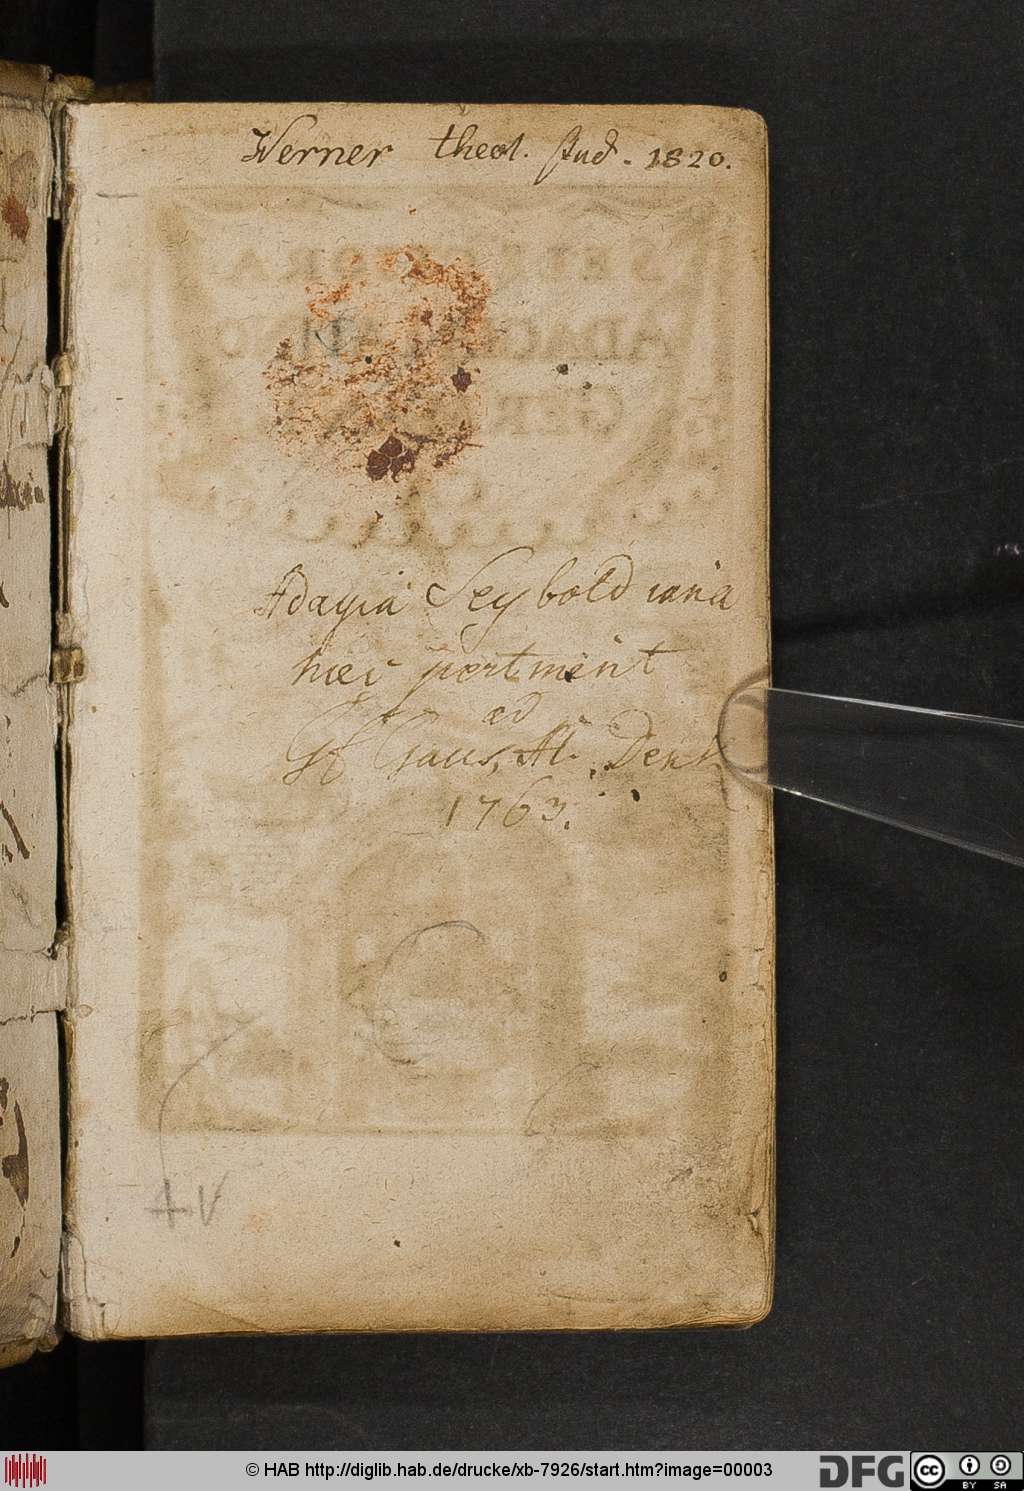 Werner theol. stud. 1820.
Adagia Seyboldiana
haec pertinent
ad
Gf Gaus, Al. Denk
1763.
A V
© HAB http://diglib.hab.de/drucke/xb-7926/start.htm?image=00003
DFG
cc
BY SA